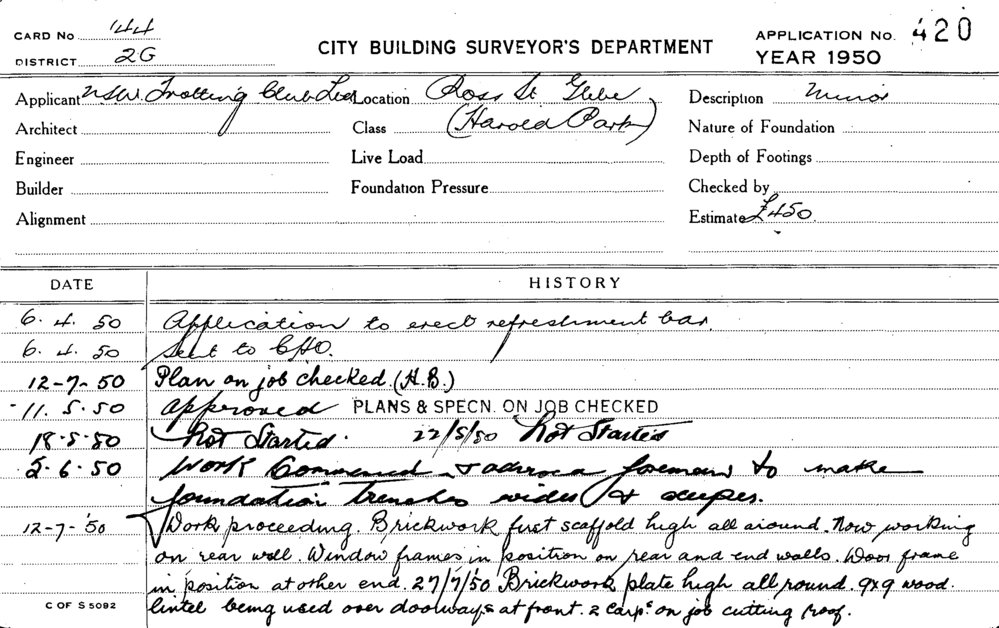 CARD No 144
DISTRICT 2G
CITY BUILDING SURVEYOR'S DEPARTMENT
APPLICATION No. 420
YEAR 1950
Applicant N.S.W. Trotting Club Ltd Location Ross St Glebe Description Minor
Architect Class (Harold Park) Nature of Foundation
Engineer Live Load Depth of Footings
Builder Foundation Pressure Checked by
Alignment Estimate £450
DATE HISTORY
6. 4. 50 Application to erect refreshment bar.
6. 4. 50 Sent to CHO.
12-7-50 Plan on job checked (H.B.)
11. 5. 50 Approved PLANS & SPECN. ON JOB CHECKED
18-5-50 Not Started. 22/5/50 Not Started
2-6-50 Work Commenced & foreman to make
foundation trenches wider & deeper.
12-7-'50 Work proceeding. Brickwork first scaffold high all around. Now working
on rear wall. Window frames in position on rear and end walls. Door frame
in position at other end. 27/7/50 Brickwork plate high all round. 9x9 wood
lintel being used over doorways at front. 2 carps. on job cutting roof.
C OF S 5092